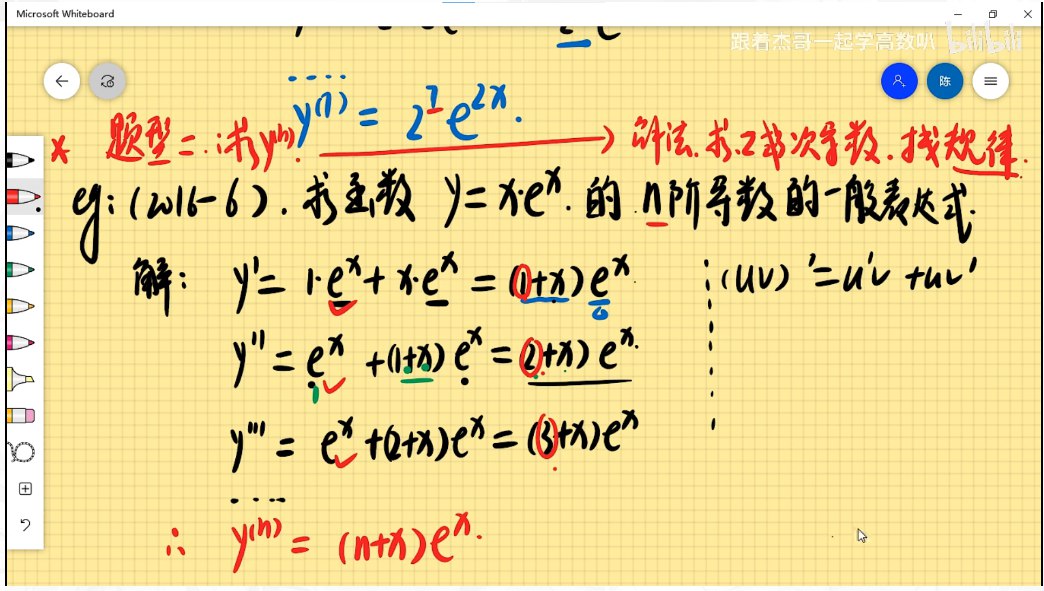 Microsoft Whiteboard
跟着杰哥一起学高数叭 bilibili
陈
....
y⁽⁷⁾ = 2⁷e²ˣ.
* 题型二:求y⁽ⁿ⁾. → 方法.求2到3次导数.找规律.
eg:(2016-6).求函数 y=x·eˣ.的 n阶导数的一般表达式.
解: y' = 1·eˣ + x·eˣ = (1+x)eˣ (uv)' = u'v + uv'
y'' = eˣ + (1+x)eˣ = (2+x)eˣ.
y''' = eˣ + (2+x)eˣ = (3+x)eˣ
....
∴ y⁽ⁿ⁾ = (n+x)eˣ.